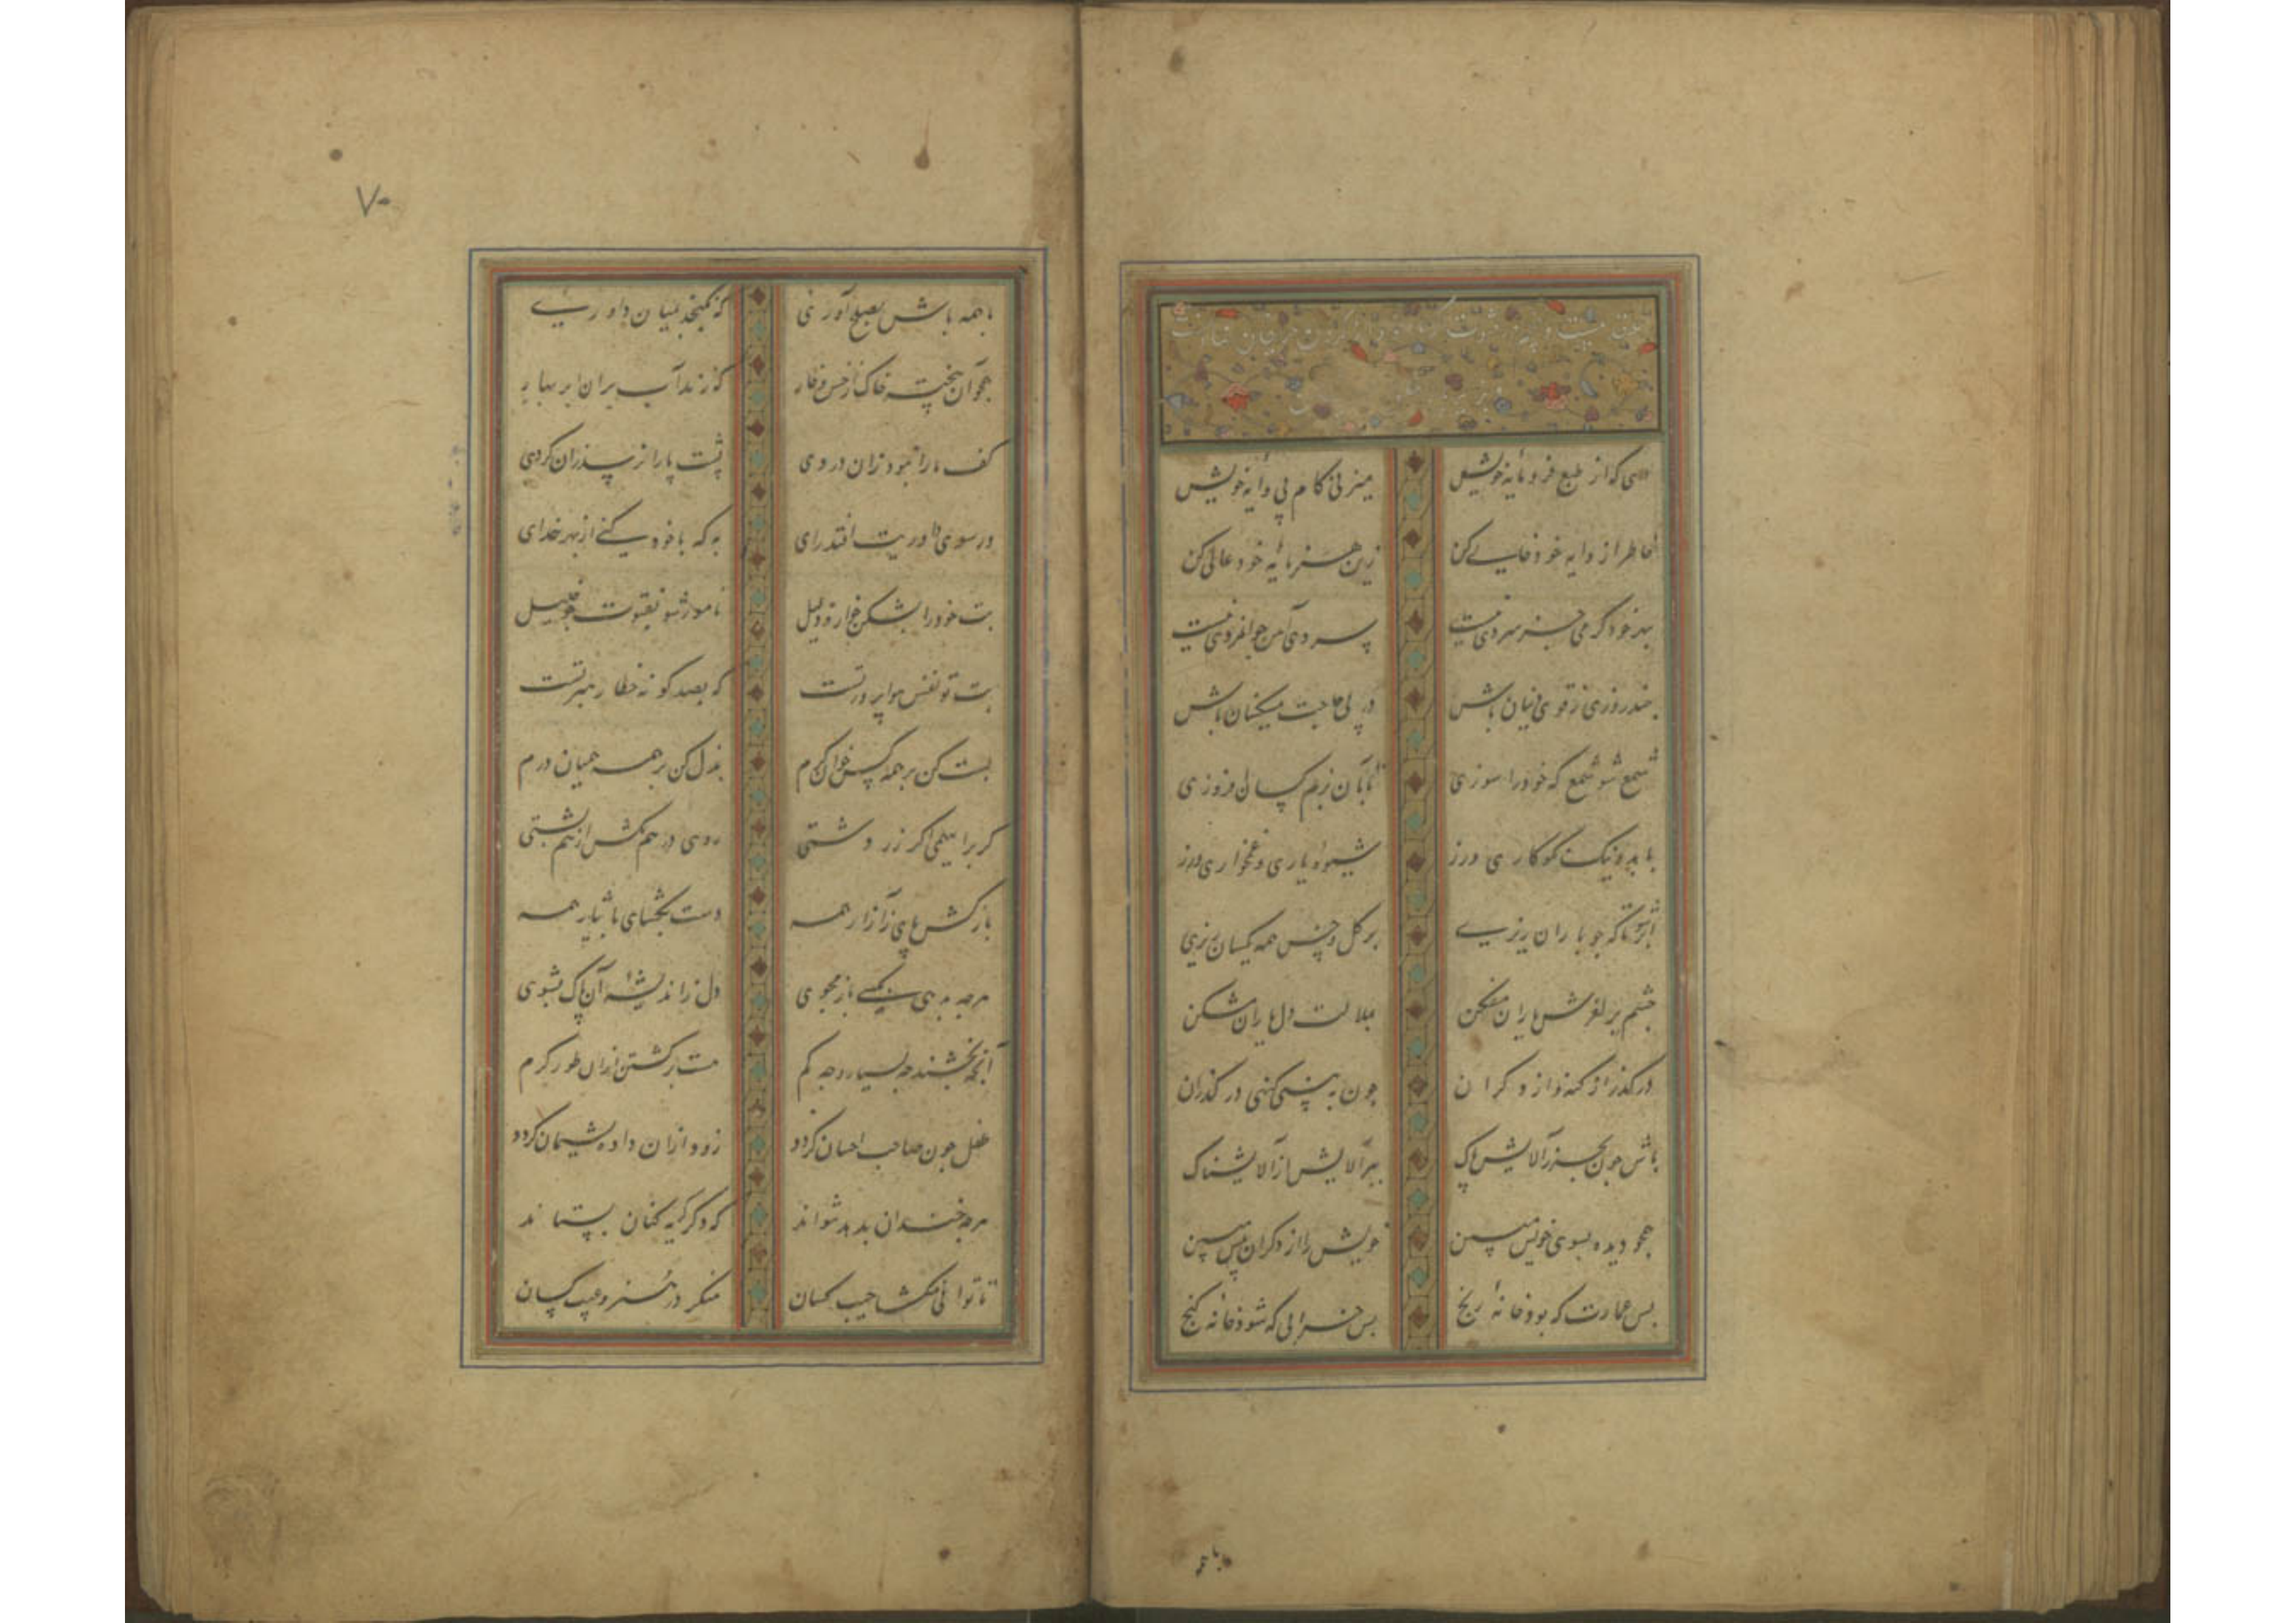 ای که از طبع فرومایه خویش میزنی کام پی وایه خویش
خاطر از وایه خود خالی کن زین هنر پایه خود عالی کن
بهر خود گرمی جز سردی نیست سردی آمین جوانمردی نیست
چند روزی ز قوی دینان باش در پی حاجت مسکینان باش
شمع شو شمع که خود را سوزی تا بآن بزم کسان افروزی
با بد و نیک نکوکاری ورز شیوه یاری و غمخواری ورز
ابر شو تا که چو باران ریزی بر گل و خس همه یکسان ریزی
چشم بر لغزش یاران مفکن بملامت دل یاران مشکن
درگذر از گنه و از دگران چون ببینی گنهی درگذران
باش چون بحر ز آلایش پاک ببر آلایش از آلایشناک
همچو دیده بسوی خویش مبین خویش را از دگران پیش مبین
بس عمارت که بود خانه رنج بس خرابی که شود خانه گنج
با همه
۷۰
با همه باش بصلح آوری که نگنجد بمیان داوری
همچو آن پخته خاک از خس و خار که زند آب بر آن ابر بهار
کف پا را نبود زان دردی پشت پا را نرسد زان گردی
ور سوی داوریت افتد رای به که با خود کنی از بهر خدای
بت خود را بشکن خوار و ذلیل نامور شو بفتوت چو خلیل
بت تو نفس هواپرورتست که بصد گونه خطا رهبر تست
بسط کن بر همه کس خوان کرم بذل کن بر همه همیان درم
گر براهیمی اگر زردشتی روی در هم مکش از هم پشتی
باز کش پای ز آزار همه دست بگشای بایثار همه
هر چه بدهی بکسی باز مجوی دل ز اندیشه آن پاک بشوی
آنچه بخشند چه بسیار و چه کم نیست برگشتن از آن طور کرم
طفل چون صاحب احسان گردد زود از آن داده پشیمان گردد
هر چه خندان بدهد نتواند که دگر گریه کنان نستاند
تا توانی مگشا جیب کسان منگر در هنر و عیب کسان